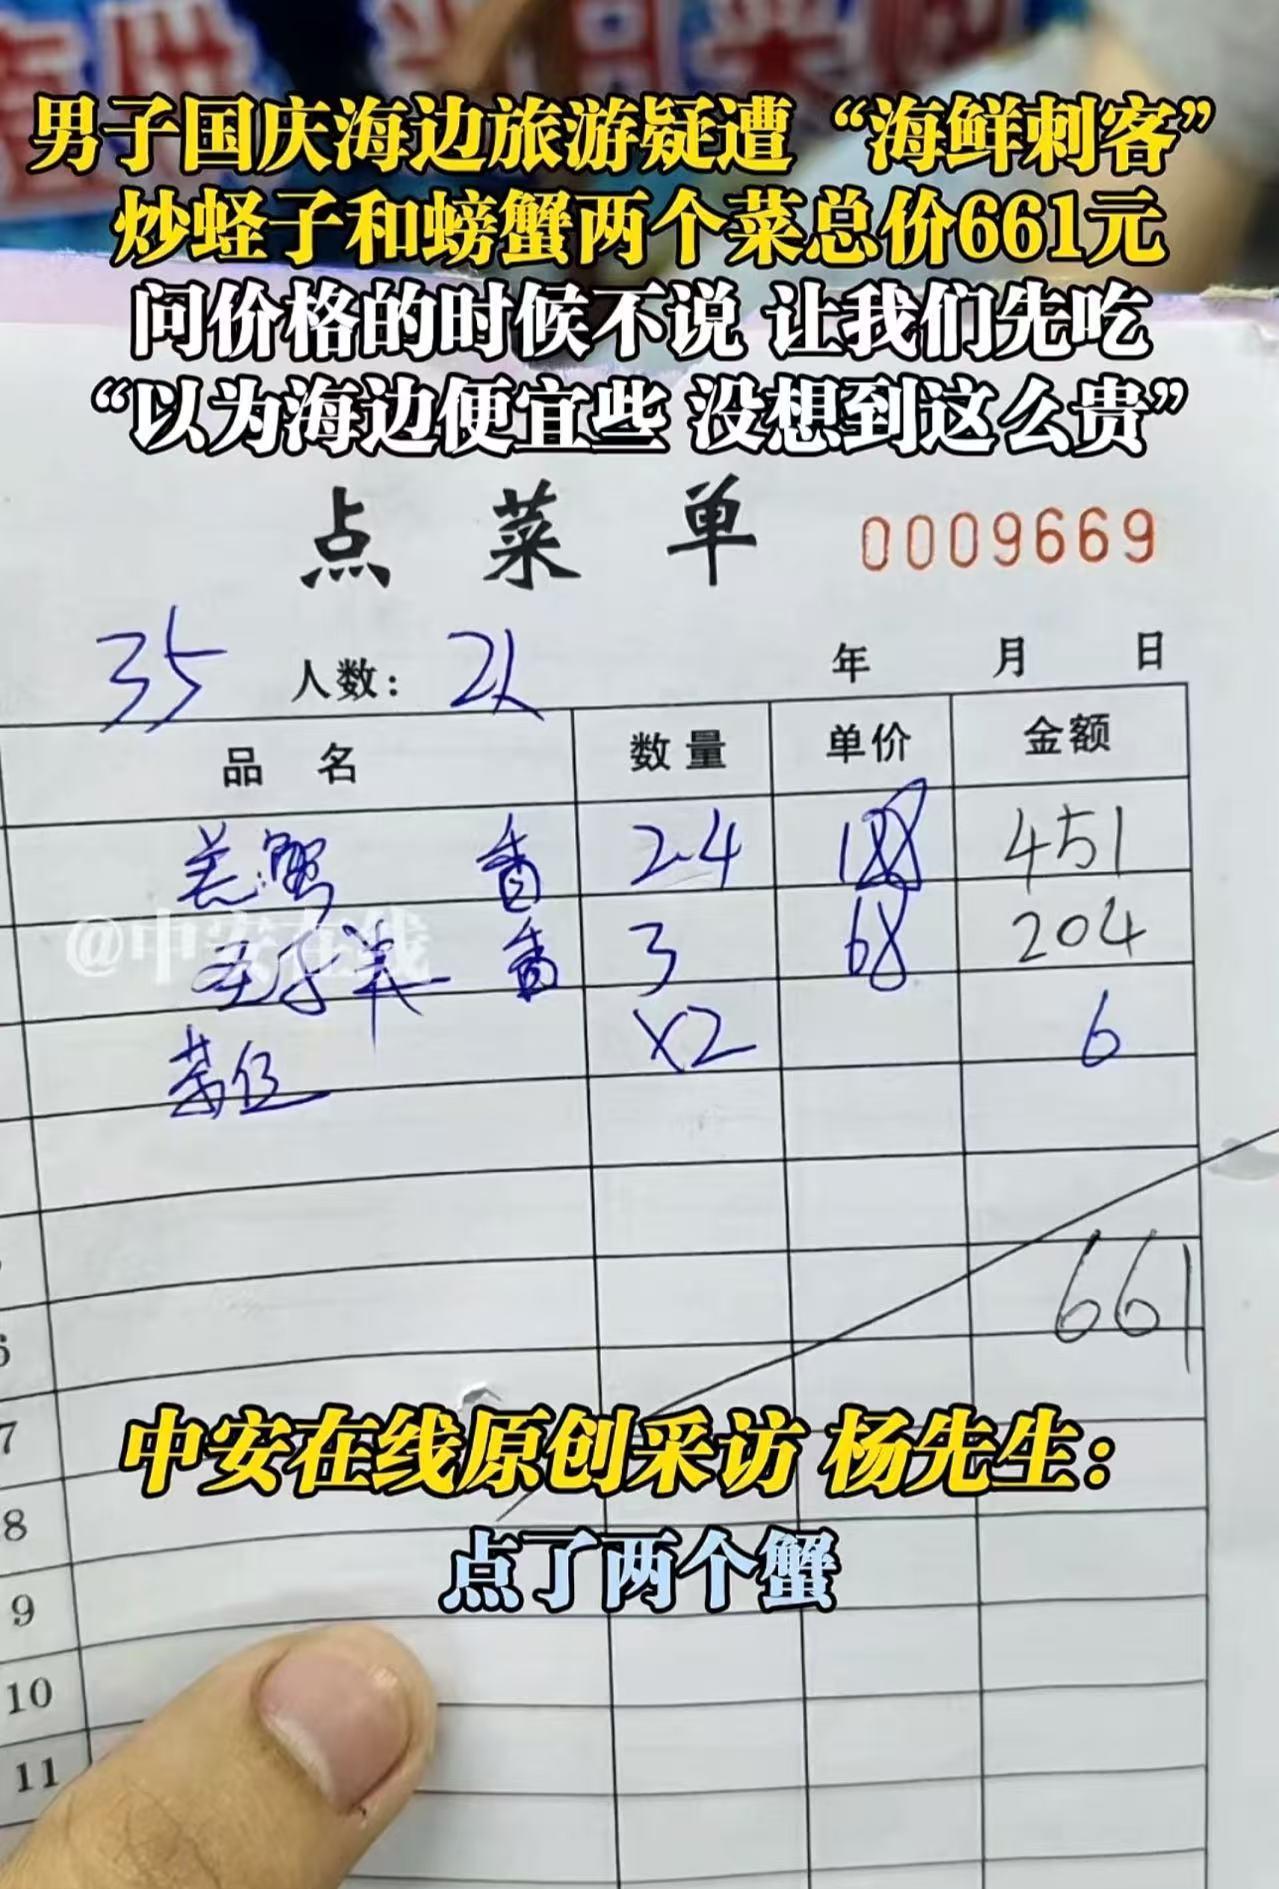 男子国庆海边旅游疑遭“海鲜刺客”
炒蛏子和螃蟹两个菜总价661元
问价格的时候不说 让我们先吃
“以为海边便宜些 没想到这么贵”
点菜单 0009669
35 人数： 2人 年 月 日
品名 数量 单价 金额
羔蟹 香 2.4 188 451
香 3 68 204
@中安在线
茶位 X2 6
661
6
7
中安在线原创采访 杨先生：
8
点了两个蟹
9
10
11